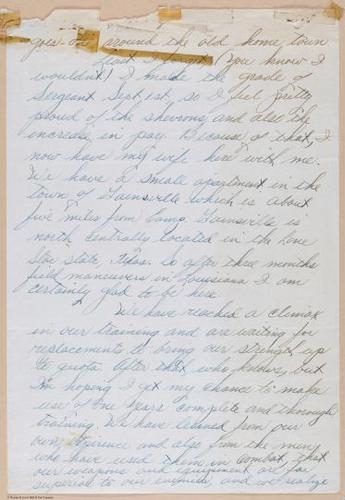 goes on around the old home town
least I forget (You know I
wouldn't) I made the grade of
Sergeant Sept. 1st, so I feel pretty
proud of the shevrons and also the
increase in pay. Because of that, I
now have my wife here with me.
We have a small apartment in the
town of Gainsville which is about
five miles from Camp. Gainsville is
north centrally located in the Lone
Star state, Texas. So after three months
field manuevers in Louisiana I am
certainly glad to be here.
We have reached a climax
in our training and are waiting for
replacements to bring our strength up
to quota. After that, who knows, but
I'm hoping I get my chance to make
use of one years complete and thorough
training. We have learned from our
own experience and also from the many
who have used them in combat, that
our weapons and equipment are far
superior to our enemies and we realize